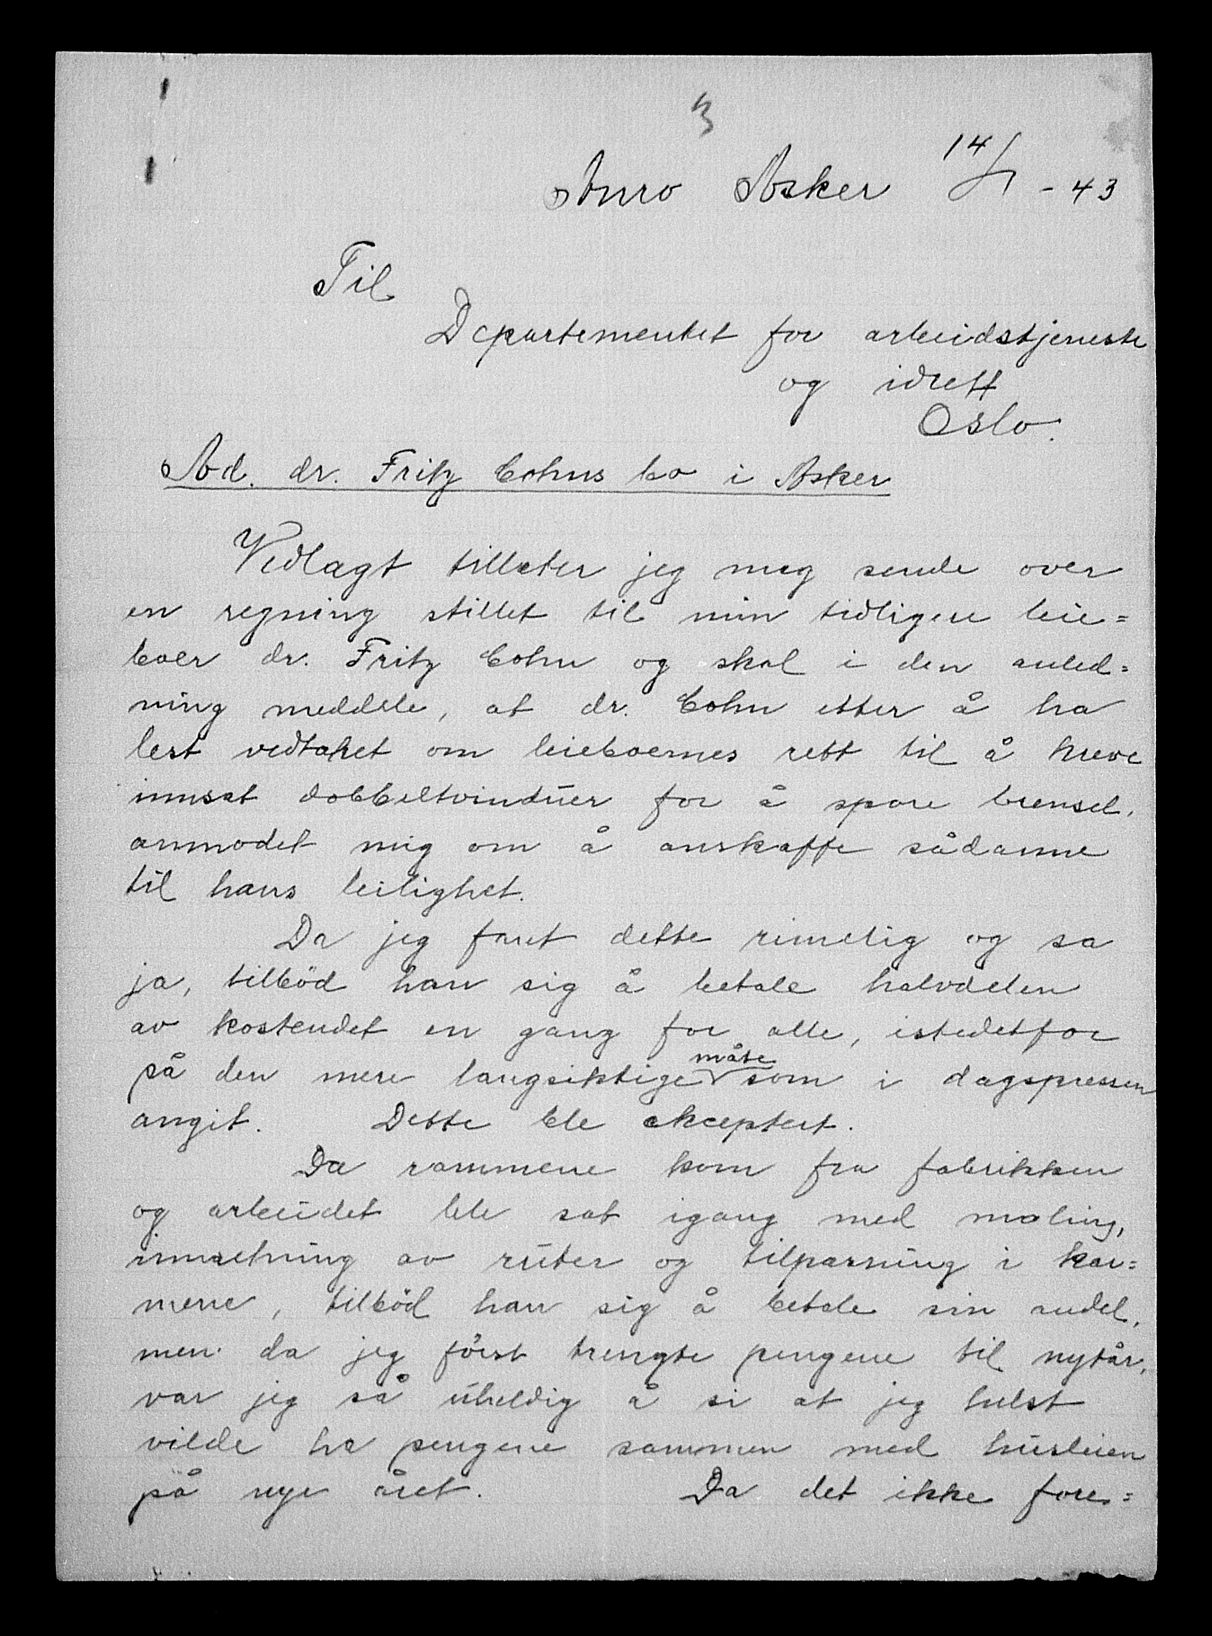 3
Anro Asker 14/1 - 43
Til
Departementet for arbeidstjeneste
og idrett
Oslo.
Ad. dr. Fritz Cohns bo i Asker
Vedlagt tillater jeg meg sende over
en regning stillet til min tidligere leie=
boer dr. Fritz Cohn og skal i den anled=
ning meddele, at dr. Cohn etter å ha
lest vedtaket om leieboernes rett til å kreve
innsat dobbeltvinduer for å spare brensel,
anmodet mig om å anskaffe sådanne
til hans leilighet.
Da jeg fant dette rimelig og sa
ja, tilbød han sig å betale halvdelen
av kostendet en gang for alle, istedetfor
på den mere langsiktige måte som i dagspressen
angit. Dette ble akceptert.
Da rammene kom fra fabrikken
og arbeidet ble sat igang med maling,
innsetning av ruter og tilpasning i kar=
mene, tilbød han sig å betale sin andel,
men da jeg først trengte pengene til nytår,
var jeg så uheldig å si at jeg helst
vilde ha pengene sammen med husleien
på nye året. Da det ikke fore=